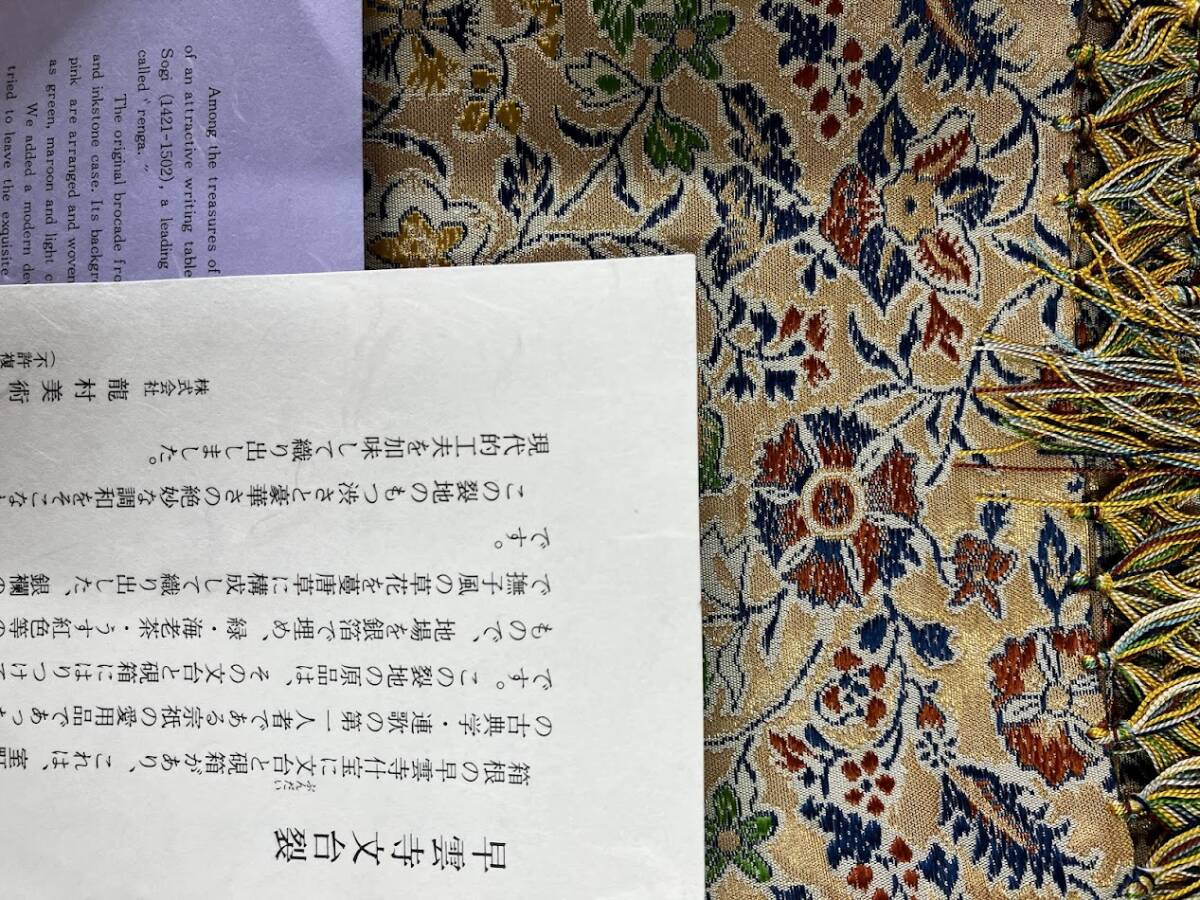 Among the treasures of
of an attractive writing table
Sogi (1421-1502), a leading
called "renga."
The original brocade fro
and inkstone case. Its backgr
pink are arranged and woven
as green, maroon and light c
We added a modern dev
tried to leave the exquisite
早雲寺文台裂
ぶんだい
箱根の早雲寺什宝に文台と硯箱があり、これは、室
の古典学・連歌の第一人者である宗祇の愛用品であった
です。この裂地の原品は、その文台と硯箱にはりつけて
もので、地場を銀箔で埋め、緑・海老茶・うす紅色等の
で撫子風の草花を蔓唐草に構成して織り出した、銀襴の
です。
この裂地のもつ渋さと豪華さの絶妙な調和をそこな
現代的工夫を加味して織り出しました。
株式会社 龍村美術
(不許複